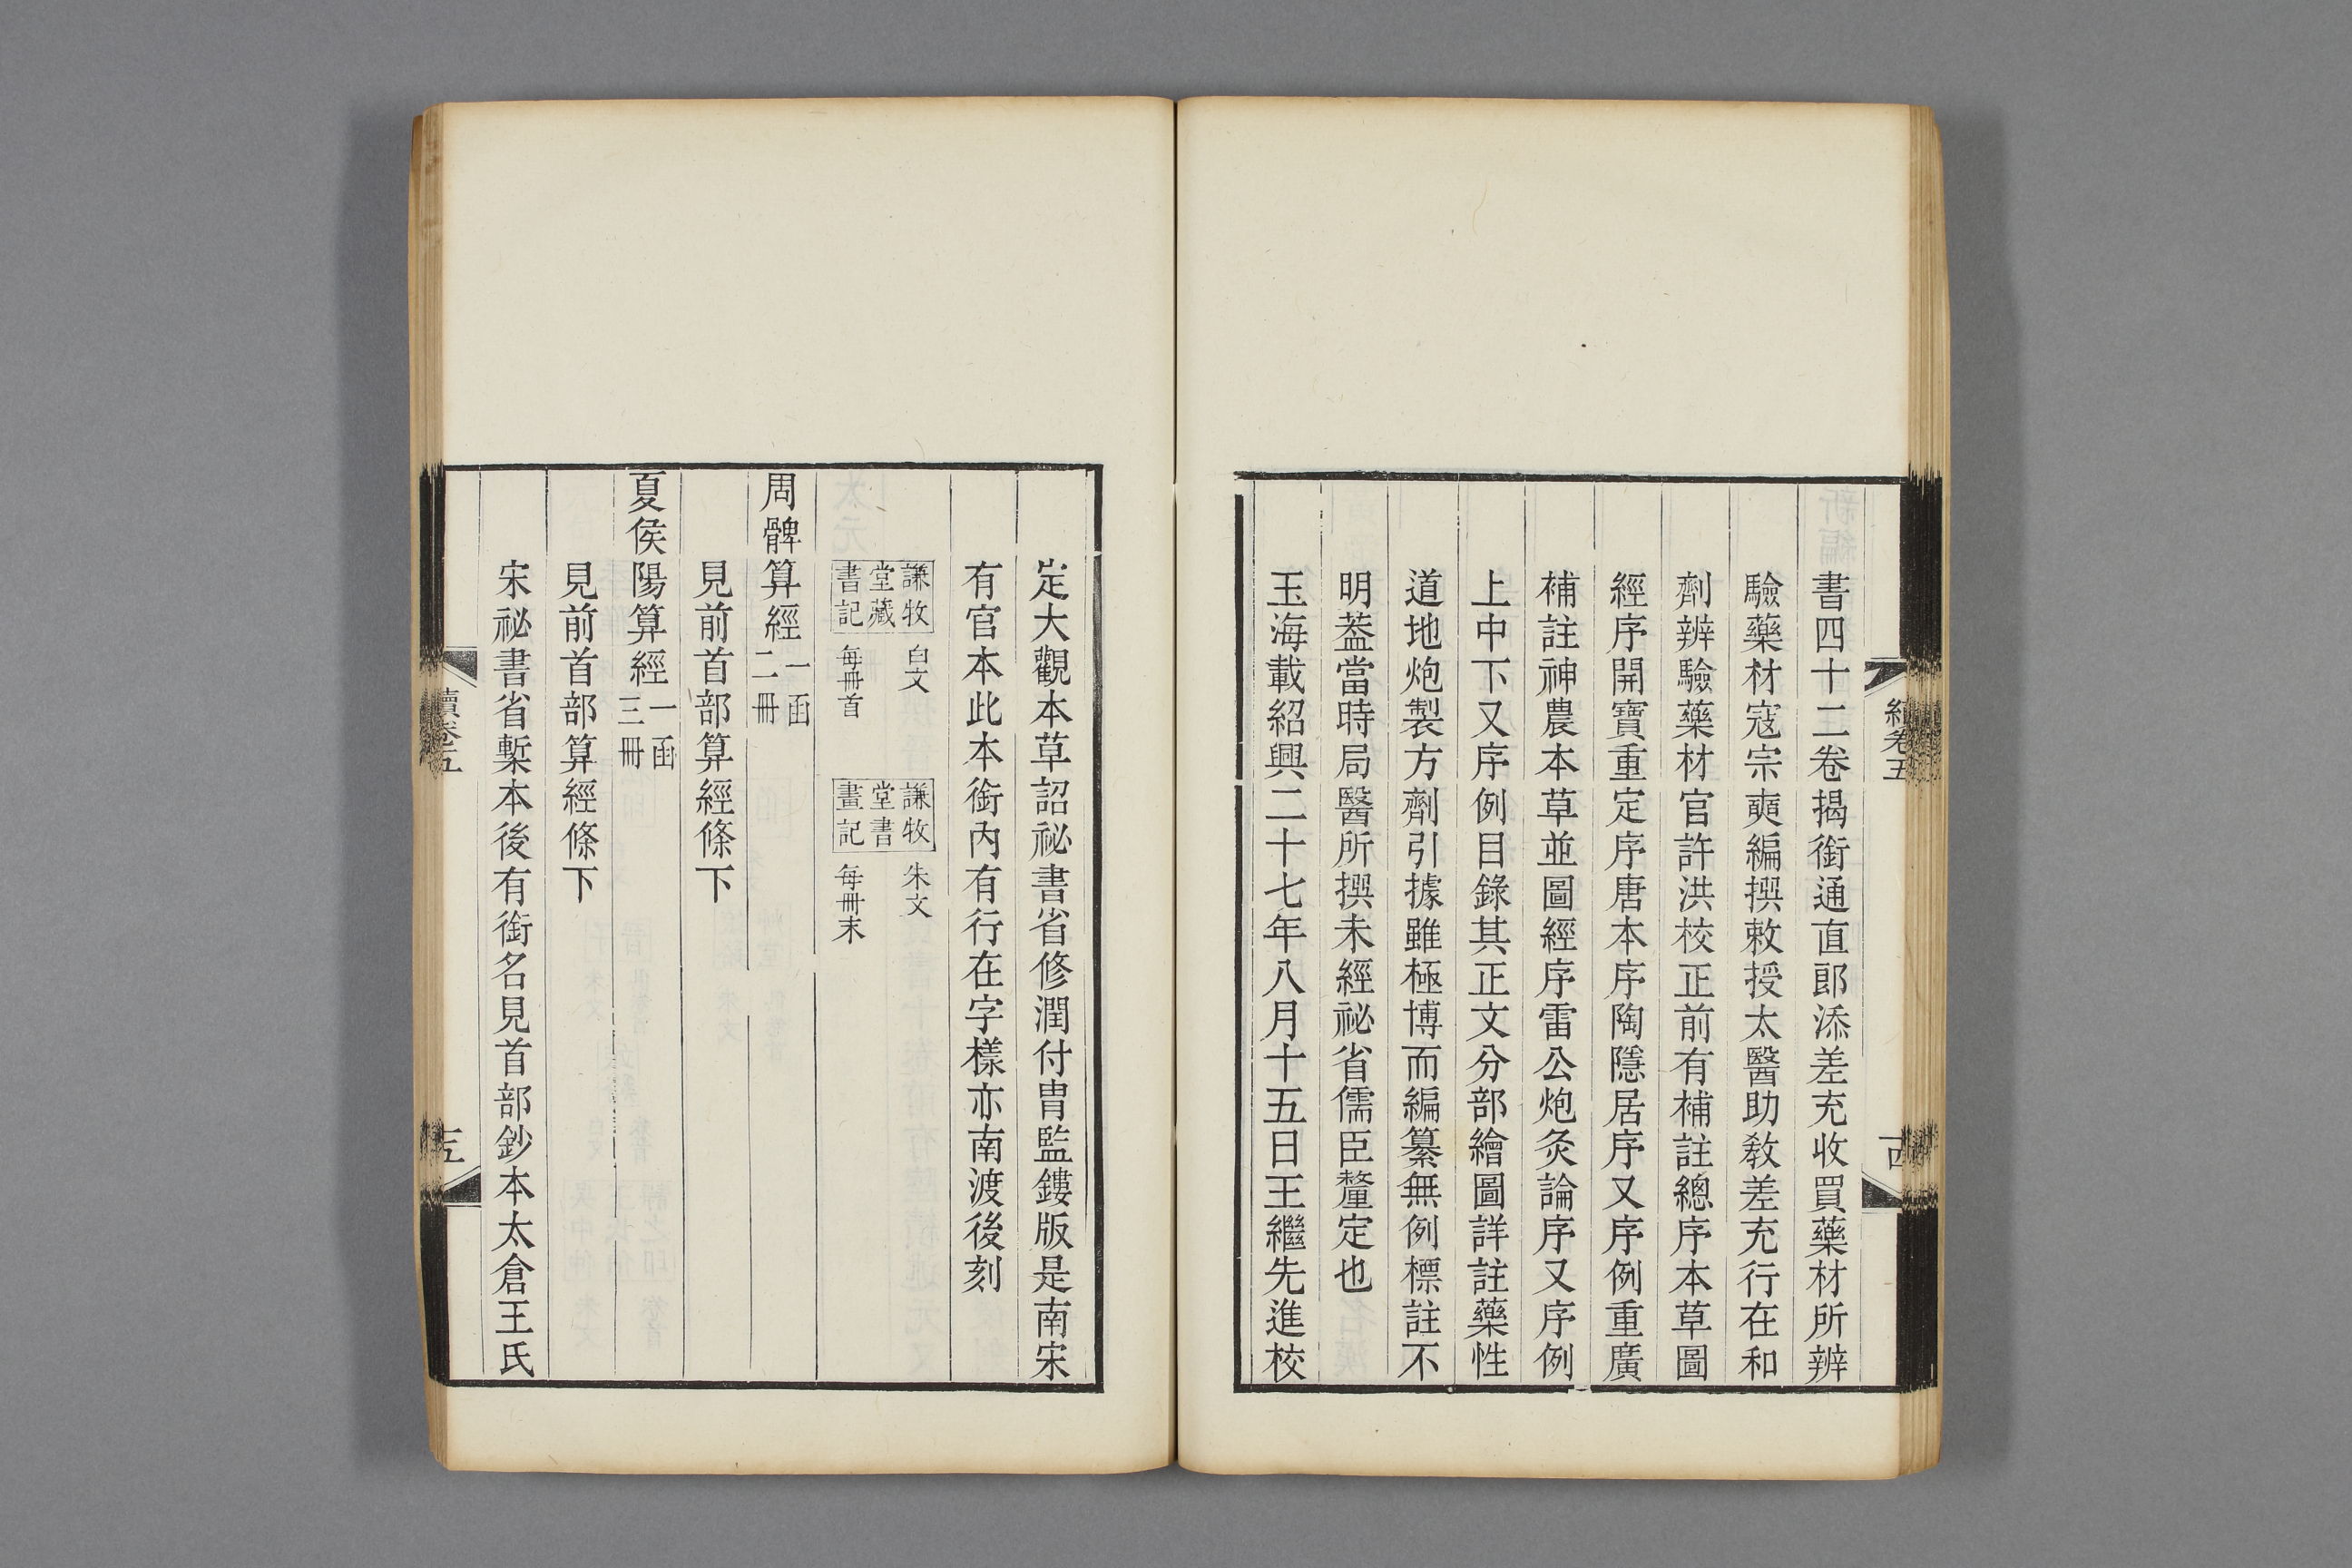 書四十二卷揭銜通直郎添差充收買藥材所辨
驗藥材寇宗奭編撰敕授太醫助教差充行在和
劑辨驗藥材官許洪校正前有補註總序本草圖
經序開寶重定序唐本序陶隱居序又序例重廣
補註神農本草並圖經序雷公炮灸論序又序例
上中下又序例目錄其正文分部繪圖詳註藥性
道地炮製方劑引據雖極博而編纂無例標註不
明葢當時局醫所撰未經祕省儒臣釐定也
玉海載紹興二十七年八月十五日王繼先進校
定大觀本草詔祕書省修潤付胄監鏤版是南宋
有官本此本銜內有行在字樣亦南渡後刻
謙牧堂藏書記 白文每冊首 謙牧堂書畫記 朱文每冊末
周髀算經 一函二冊
見前首部算經條下
夏侯陽算經 一函三冊
見前首部算經條下
宋祕書省槧本後有銜名見首部鈔本太倉王氏
續卷五